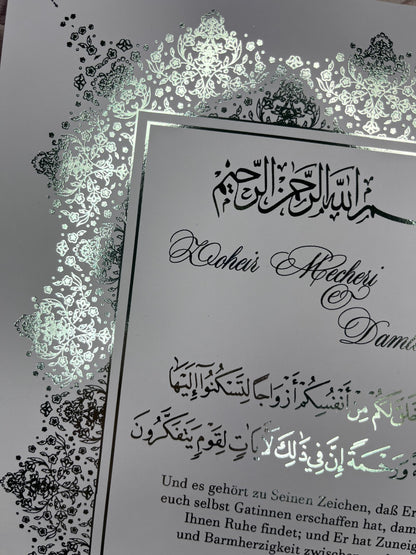 بسم الله الرحمن الرحيم
Zoheir Mecheri
&
خَلَقَ لَكُمْ مِنْ أَنْفُسِكُمْ أَزْوَاجًا لِتَسْكُنُوا إِلَيْهَا
وَرَحْمَةً إِنَّ فِي ذَٰلِكَ لَآيَاتٍ لِقَوْمٍ يَتَفَكَّرُونَ
Und es gehört zu Seinen Zeichen, daß Er
euch selbst Gatinnen erschaffen hat, dam
Ihnen Ruhe findet; und Er hat Zuneig
und Barmherzigkeit zwischen